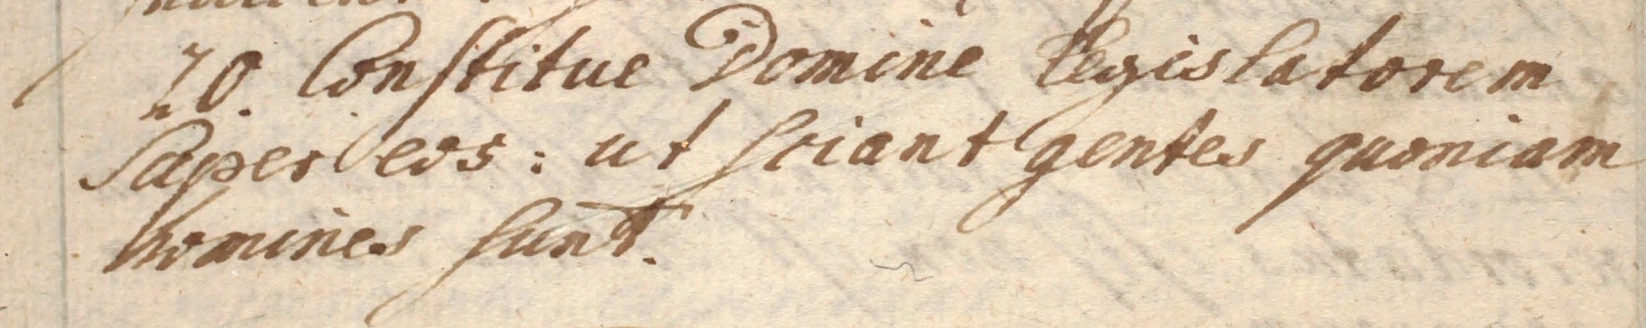 20. Constitue Domine legislatorem
super eos: ut sciant gentes quoniam
homines sunt.